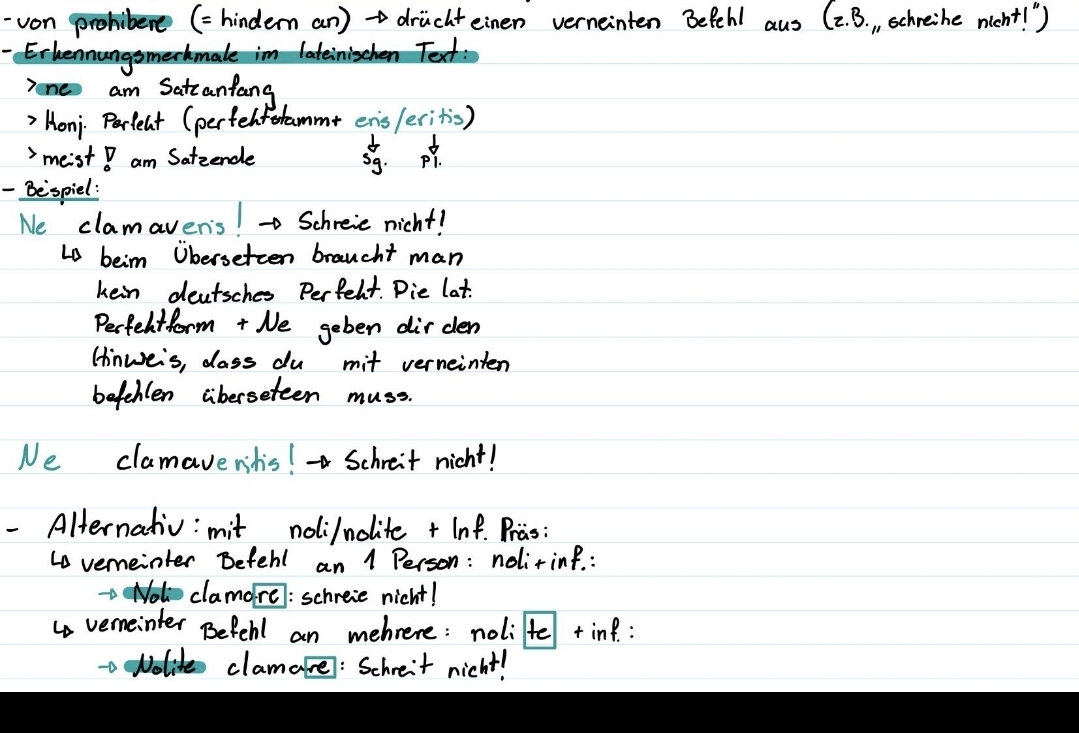 - von prohibere (= hindern an) → drückt einen verneinten Befehl aus (z.B. „schreihe nicht!")
- Erkennungsmerkmale im lateinischen Text:
> ne am Satzanfang
> Konj. Perfekt (perfektstamm + eris/eritis)
> meist ! am Satzende Sg. Pl.
- Beispiel:
Ne clamaveris! → Schreie nicht!
↳ beim Übersetzen braucht man
kein deutsches Perfekt. Die lat.
Perfektform + Ne geben dir den
Hinweis, dass du mit verneinten
befehlen übersetzen muss.
Ne clamaveritis! → Schreit nicht!
- Alternativ: mit noli/nolite + Inf. Präs:
↳ verneinter Befehl an 1 Person: noli + inf.:
→ Noli clamare: schreie nicht!
↳ verneinter Befehl an mehrere: nolite + inf.:
→ Nolite clamare: Schreit nicht!